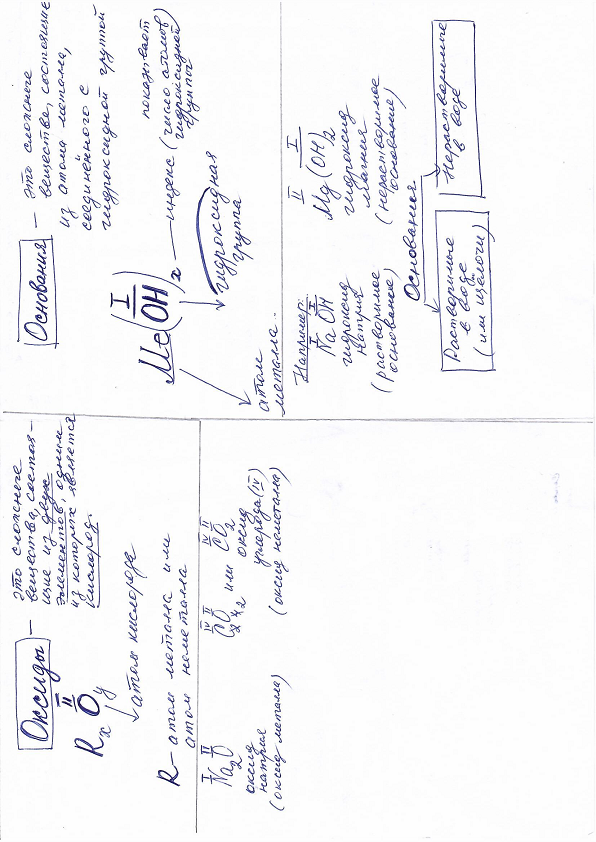 Оксиды — это сложные
вещества, состоя-
щие из двух
элементов, одним
из которых является
кислород.
II
RxOy
атом кислорода
R — атом металла или
атом неметалла
I II
Na2O
оксид
натрия
(оксид металла)
IV II IV II
C2O4 или CO2
оксид
углерода (IV)
(оксид неметалла)
Основания — это сложные
вещества, состоящие
из атома металла,
соединённого с
гидроксидной группой
I
Me(OH)x — индекс (показывает
число атомов
гидроксидной
группы)
гидроксидная
группа
атом
металла.
Например:
I I
NaOH
гидроксид
натрия
(растворимое
основание)
II I
Mg(OH)2
гидроксид
магния
(нерастворимое
основание)
Основания
Растворимые
в воде
(или щелочи)
Нерастворимые
в воде